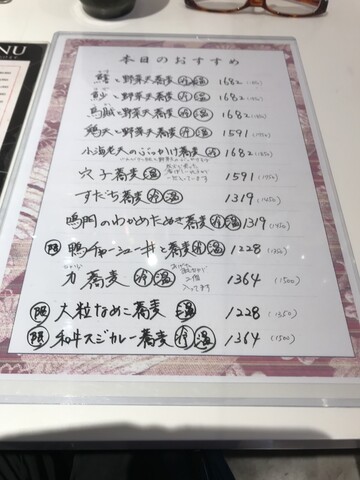 NU
本日のおすすめ
鱚と野菜天蕎麦 冷 温 1682
と野菜天蕎麦 冷 温 1682
烏賊と野菜天蕎麦 冷 温 1682
鶏天と野菜天蕎麦 冷 温 1591
小海老天のぶっかけ蕎麦 冷 1682
穴子蕎麦 温 1591
すだち蕎麦 冷 温 1319
鳴門のわかめたぬき蕎麦 冷 温 1319
限 鴨チャーシュー丼と蕎麦 冷 温 1228
力蕎麦 冷 温 1364 (1500)
限 大粒なめこ蕎麦 温 1228 (1350)
限 和牛スジカレー蕎麦 冷 温 1364 (1500)